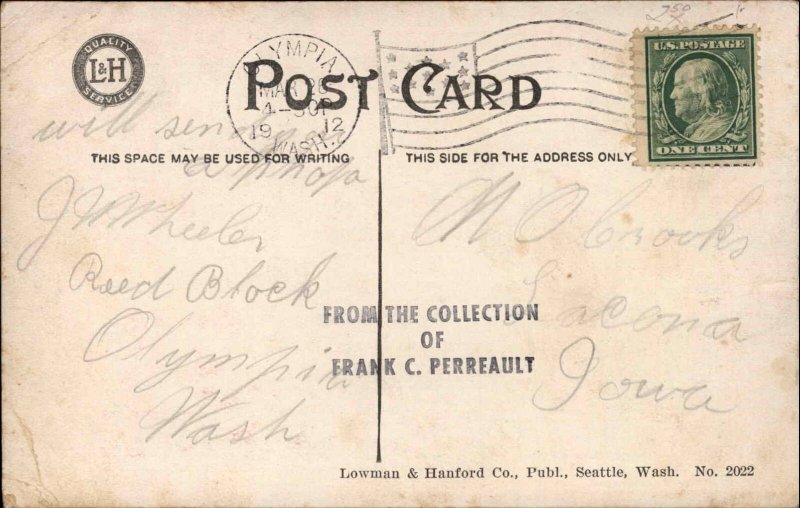 QUALITY
L&H
SERVICE
OLYMPIA
MAR 26
4-30P
19 12
WASH.
POST CARD
U.S. POSTAGE
ONE CENT
THIS SPACE MAY BE USED FOR WRITING
THIS SIDE FOR THE ADDRESS ONLY
will send you
a photo
J W Wheeler
Reed Block
Olympia
Wash
M O Crooks
Lacona
Iowa
FROM THE COLLECTION
OF
FRANK C. PERREAULT
Lowman & Hanford Co., Publ., Seattle, Wash. No. 2022